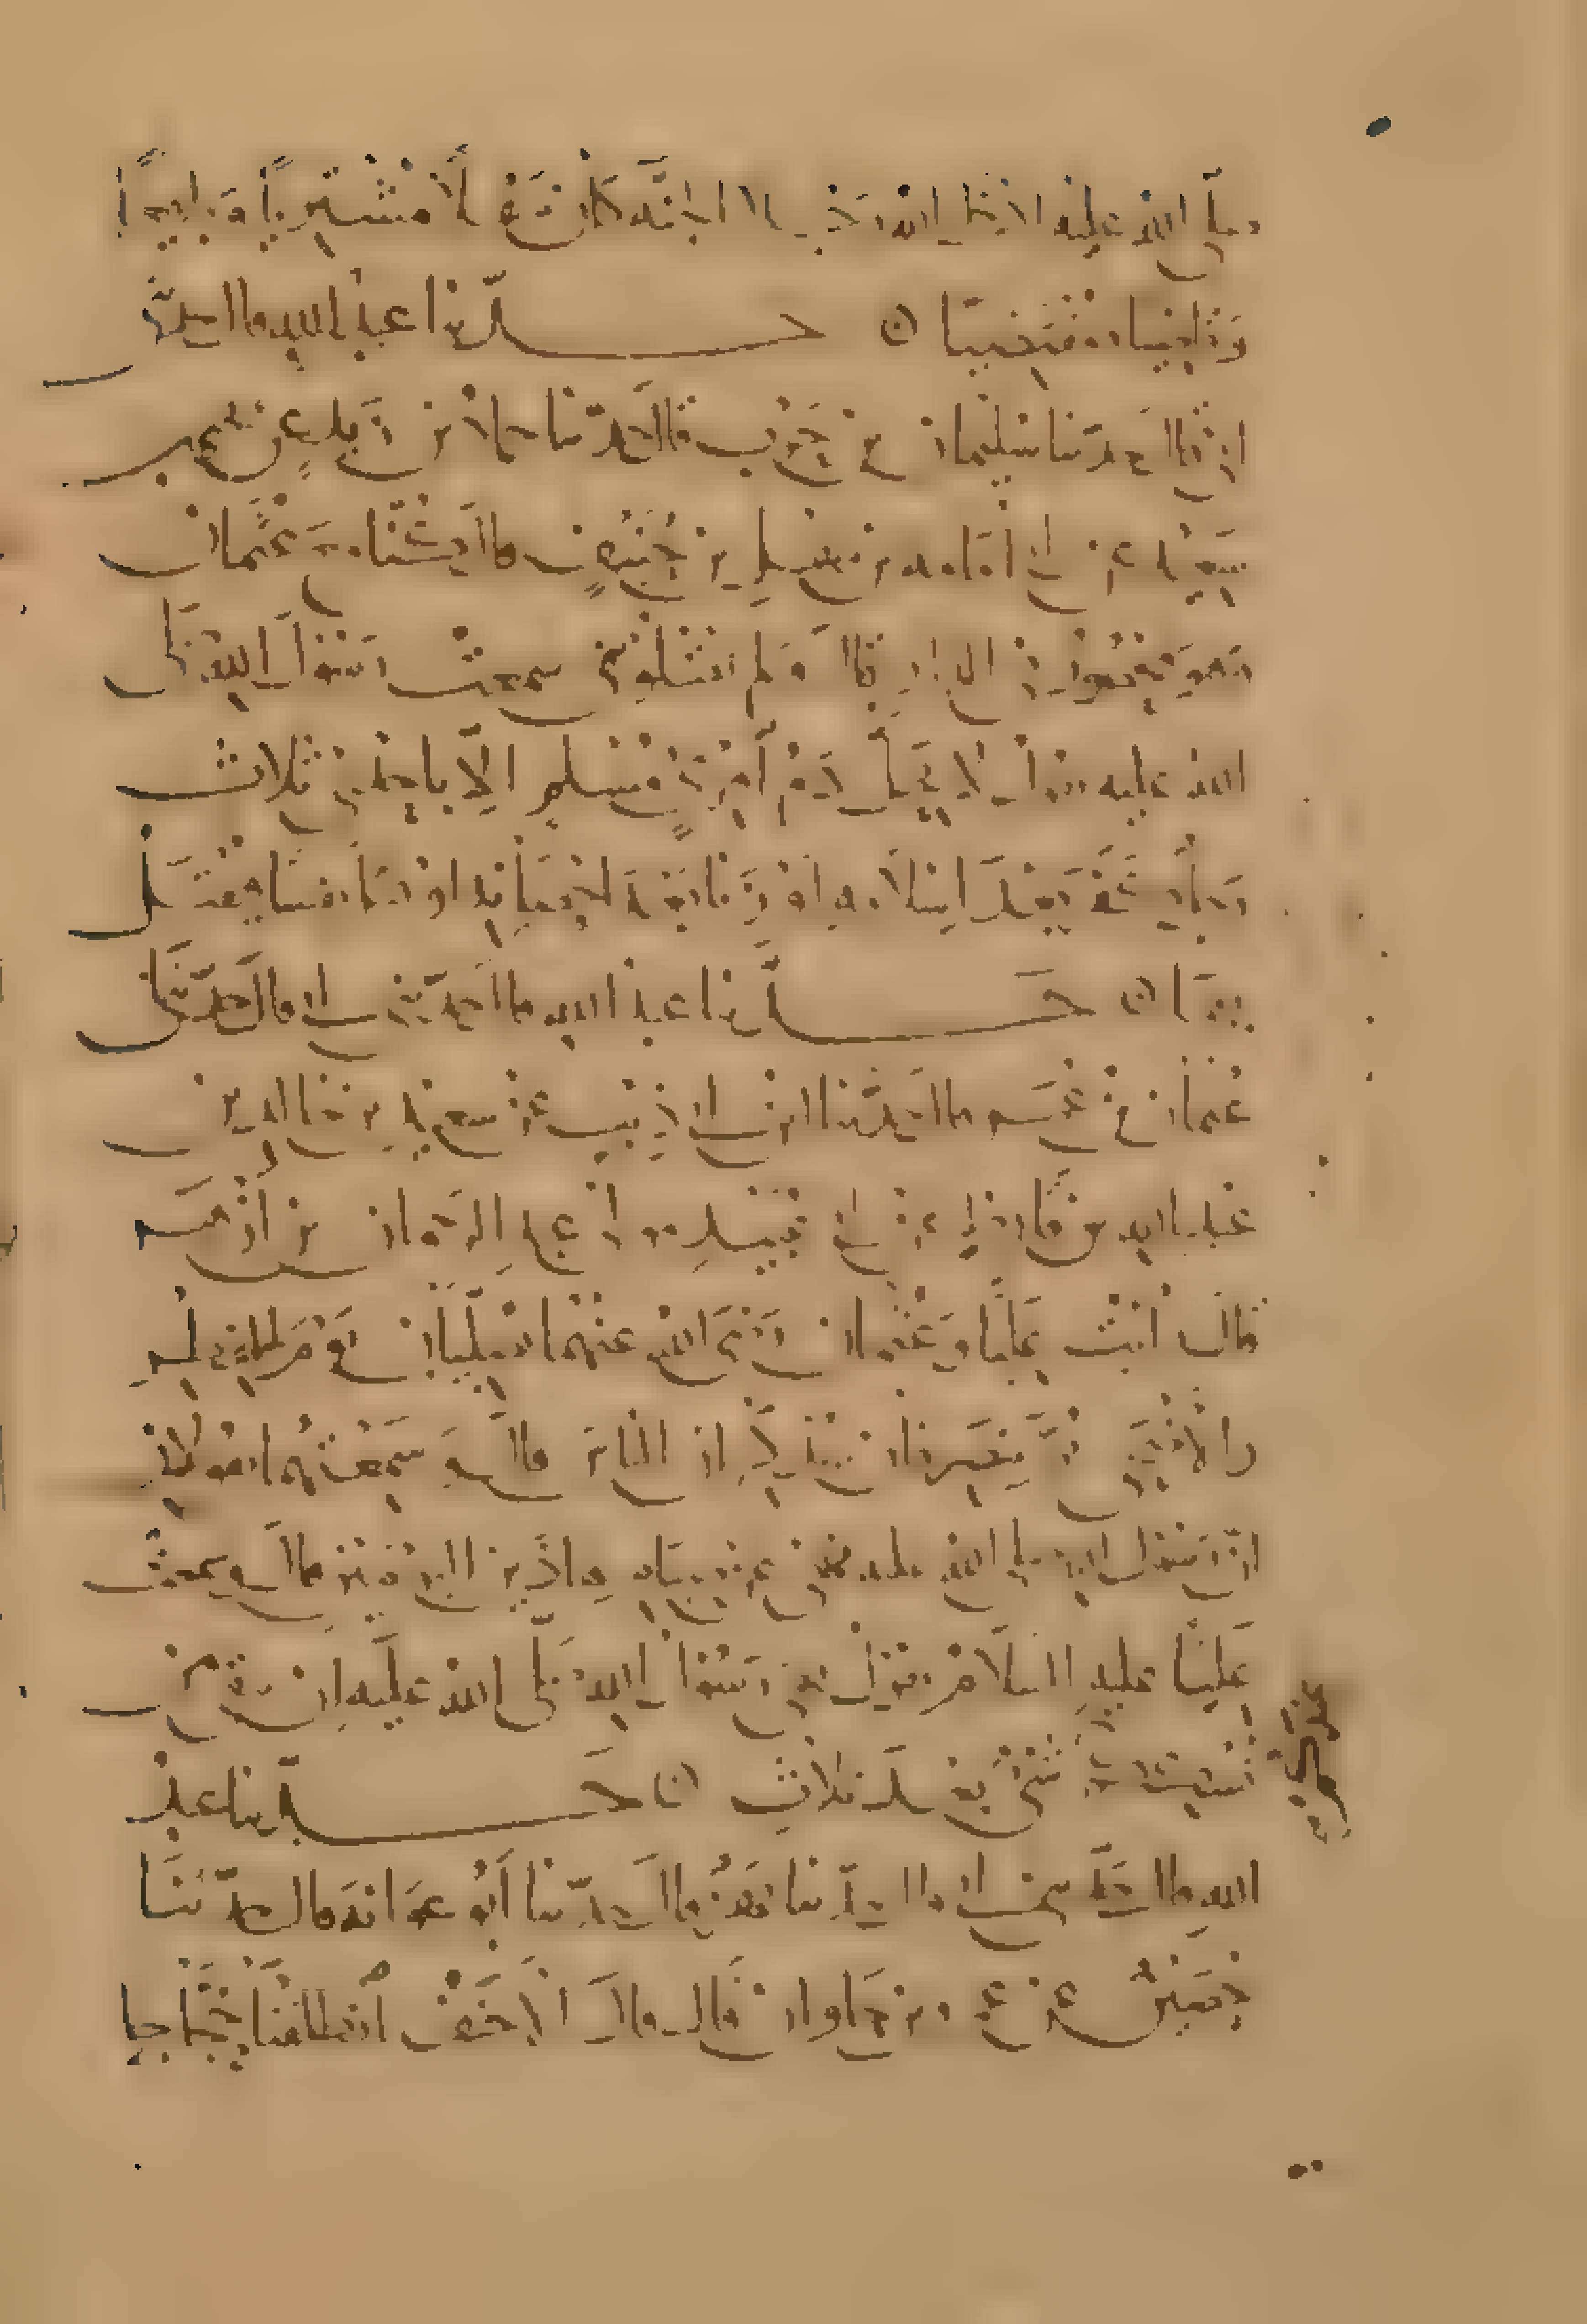 صلى الله عليه ادخل الله رجلا الجنة كان سمحا مشتريا وبايعا
وقاضيا ومقتضيا ن حدثنا عبد الله قال حدثني
ابي قال حدثنا سليمان بن حرب قال حدثنا حماد بن زيد عن يحيى بن
سعيد عن ابي امامة بن سهل بن حنيف قال كنا مع عثمان
وهو محصور في الدار قال ولم تقتلوني سمعت رسول الله صلى
الله عليه يقول لا يحل دم امرئ مسلم الا باحدى ثلاث
رجل كفر بعد اسلامه او زنا بعد احصانه او قتل نفسا فيقتل
بها ن حدثنا عبد الله قال حدثني ابي قال حدثنا
عثمان بن عمر قال حدثنا ابن ابي ذيب عن سعيد بن خالد بن
عبد الله بن قارظ عن ابي عبيد مولى عبد الرحمان بن ازهر
قال رايت عليا وعثمان رضي الله عنهما يصليان يوم الفطر
والاضحى ثم ينصرفان يذكران الناس قال وسمعتهما يقولان
ان رسول الله صلى الله عليه نهى عن صيام هاذين اليومين قال وسمعت
عليا عليه السلام يقول نهى رسول الله صلى الله عليه ان يبقى من
نسككم شيء بعد ثلاث ن حدثنا عبد
الله قال حدثني ابي قال حدثنا بهز قال حدثنا ابو عوانة قال حدثنا
حصين عن عمرو بن جاوان قال قال الاحنف انطلقنا حجاجا